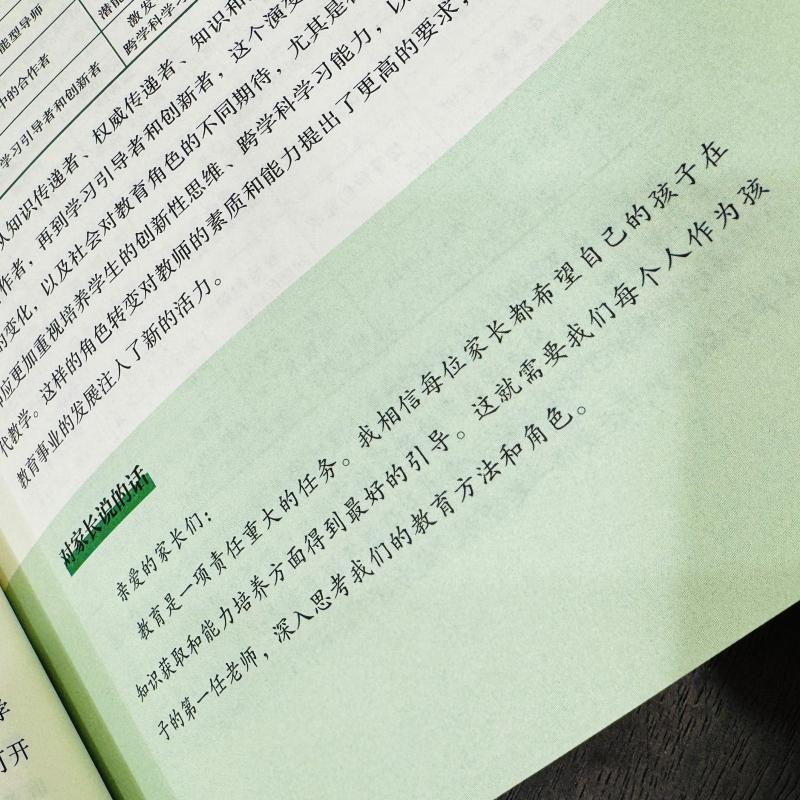 能型导师
潜能
激发
中的合作者
跨学科学
学习引导者和创新者
从知识传递者、权威传递者、知识和
作者，再到学习引导者和创新者，这个演变
的变化，以及社会对教育角色的不同期待，尤其是
应更加重视培养学生的创新性思维、跨学科学习能力，以
代教学。这样的角色转变对教师的素质和能力提出了更高的要求，
教育事业的发展注入了新的活力。
对家长说的话
亲爱的家长们：
教育是一项责任重大的任务。我相信每位家长都希望自己的孩子在
知识获取和能力培养方面得到最好的引导。这就需要我们每个人作为孩
子的第一任老师，深入思考我们的教育方法和角色。
打开